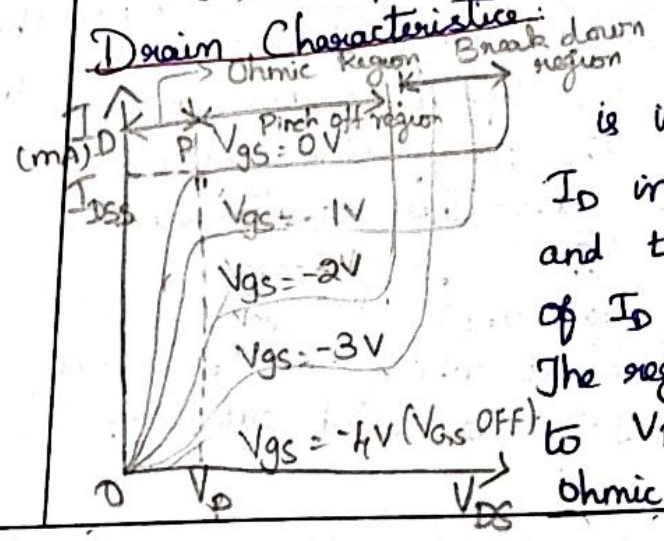 Drain Characteristics:
Ohmic Region
Break down
region
I
D
(mA)
P
Pinch off region
Vgs = 0V
IDSS
Vgs = -1V
Vgs = -2V
Vgs = -3V
Vgs = -4V (VGS OFF)
O
VP
VDS
is i
ID in
and t
of ID
The reg
to VP
Ohmic